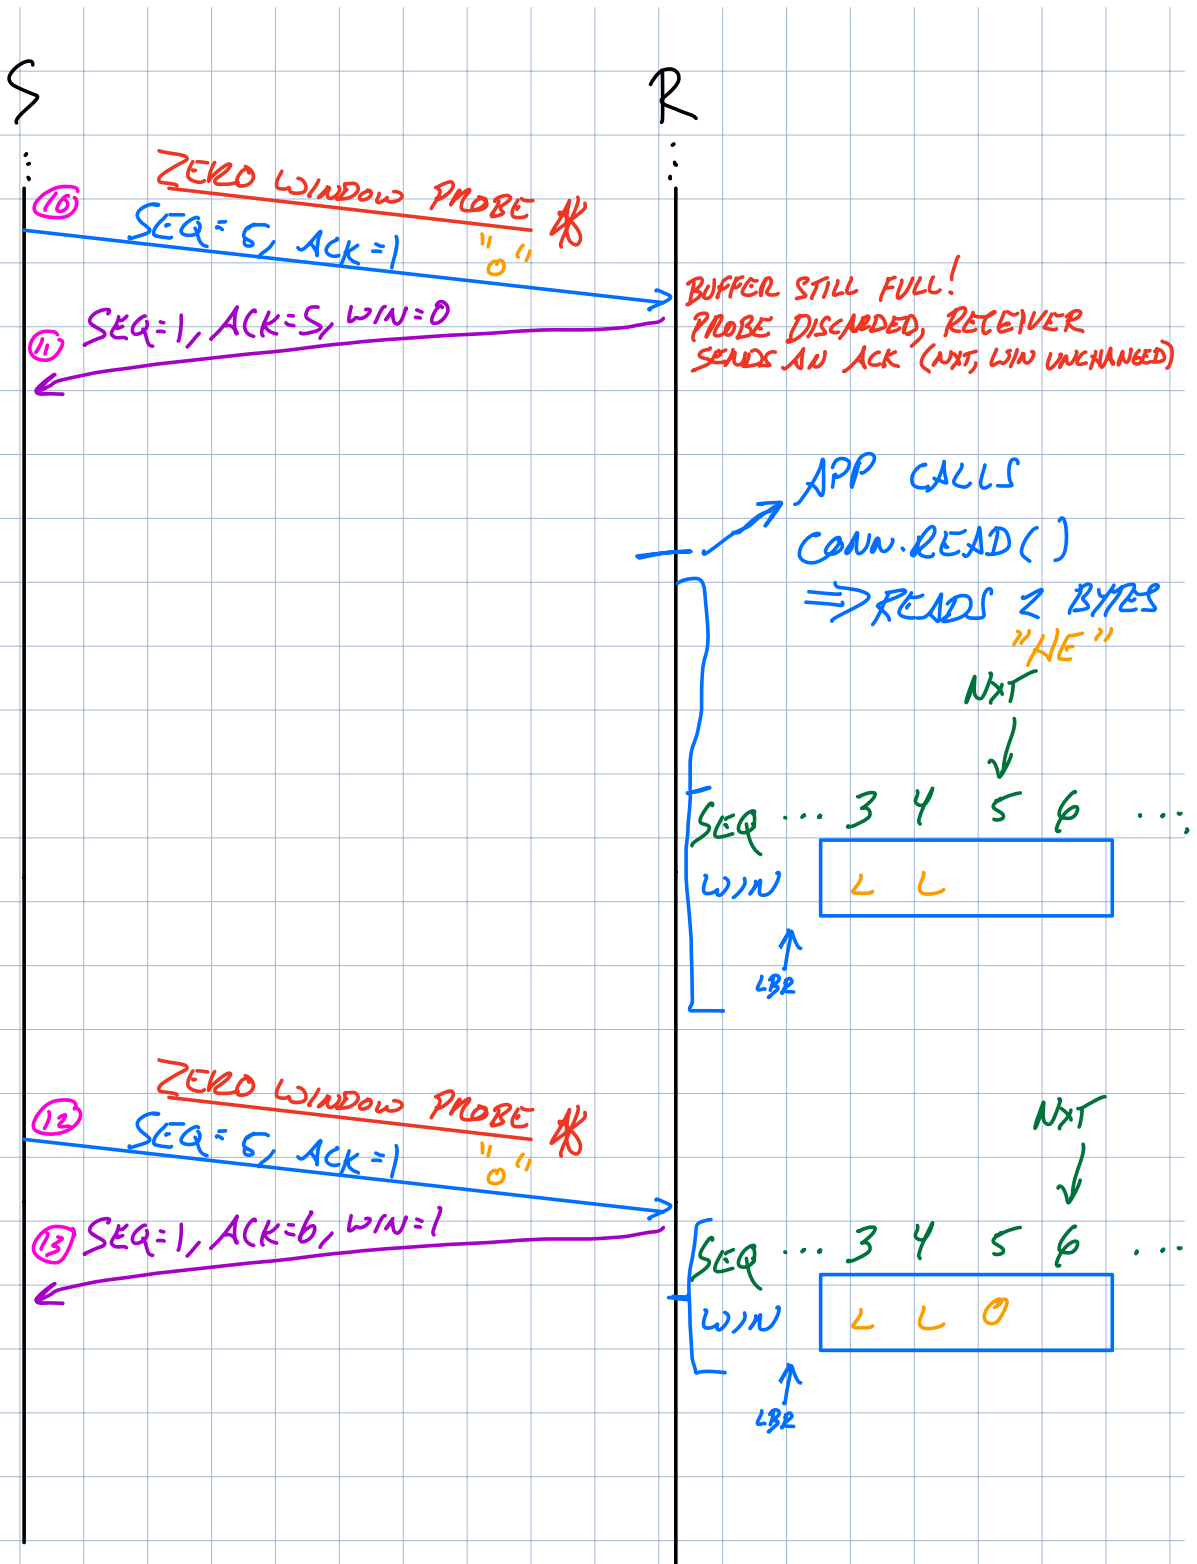 S R
ZERO WINDOW PROBE *
10 SEQ=5, ACK=1 "O"
11 SEQ=1, ACK=5, WIN=0
BUFFER STILL FULL!
PROBE DISCARDED, RECEIVER
SENDS AN ACK (NXT, WIN UNCHANGED)
APP CALLS
CONN.READ()
⇒ READS 2 BYTES
"HE"
NXT
↓
SEQ ... 3 4 5 6 ...
WIN L L
↑
LBR
ZERO WINDOW PROBE *
12 SEQ=5, ACK=1 "O"
13 SEQ=1, ACK=6, WIN=1
NXT
↓
SEQ ... 3 4 5 6 ...
WIN L L O
↑
LBR